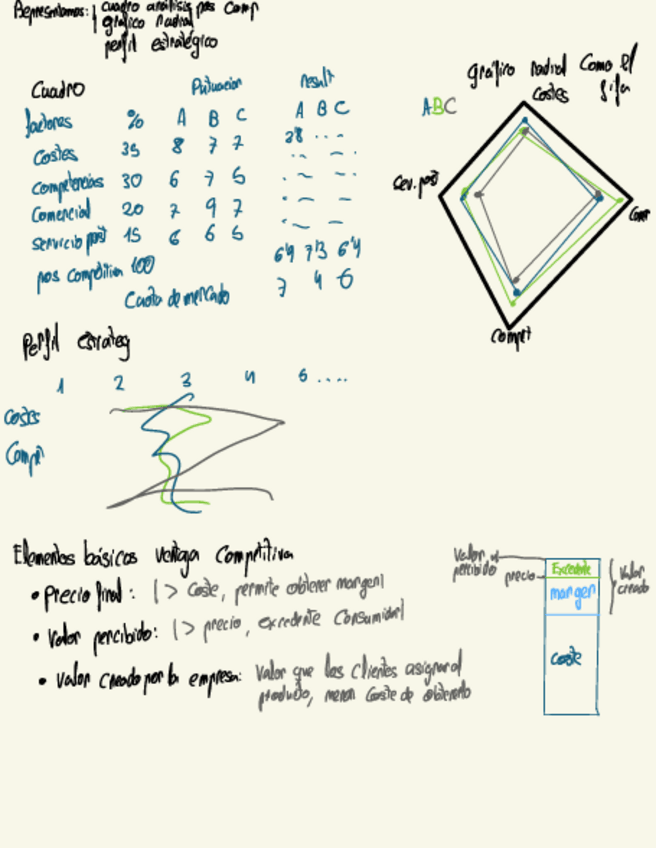 Representamos: | cuadro análisis pos comp
gráfico radial
perfil estratégico
Cuadro Puntuación result
factores % A B C A B C
Costes 35 8 7 7 28 ... -
competencias 30 6 7 5
Comercial 20 7 9 7
servicio post 15 6 6 5
pos competitiva 100 6'9 7'3 6'4
Cuota de mercado 7 4 6
gráfico radial como el fifa
ABC
Costes
Ser. post
Comer
Compet
Perfil estrateg
1 2 3 4 5 ....
Costes
Compet
Elementos básicos ventaja competitiva
• Precio final: | > coste, permite obtener margen |
• Valor percibido: | > precio, excedente consumidor |
• Valor creado por la empresa: Valor que los clientes asignan al
producto, menos coste de obtenerlo
Valor percibido
precio
Excedente
margen
coste
Valor creado